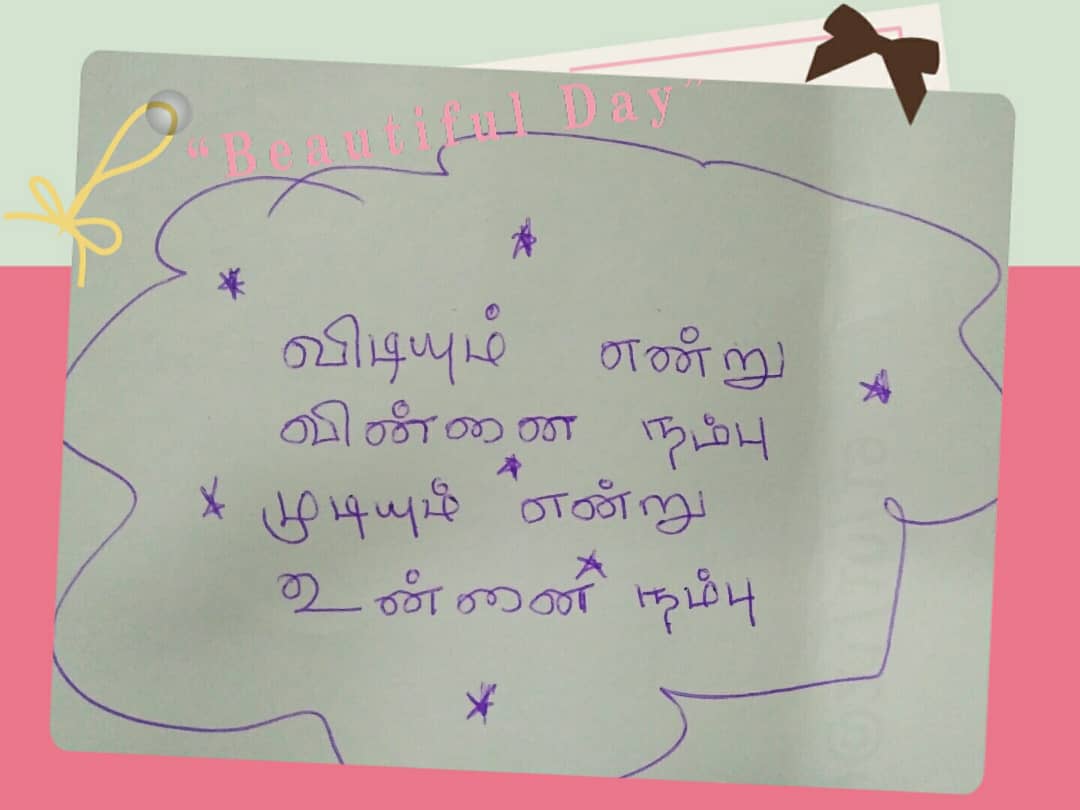 “Beautiful Day”
விடியும் என்று
விண்ணை நம்பு
முடியும் என்று
உன்னை நம்பு